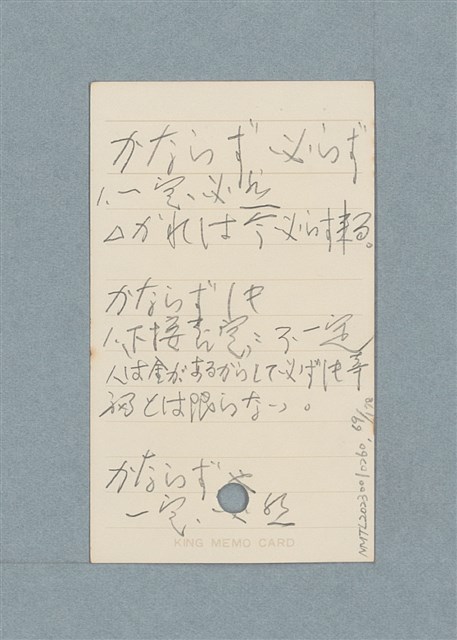 かならず 必らず
1. 一定、必然
△かれは今必らず来る。
かならずしも
1、下接
不一定
人は金があるからして必ずしも幸
福とは限らない。
かならず
一定、必然
KING MEMO CARD
NMTL20230010260, 69/178